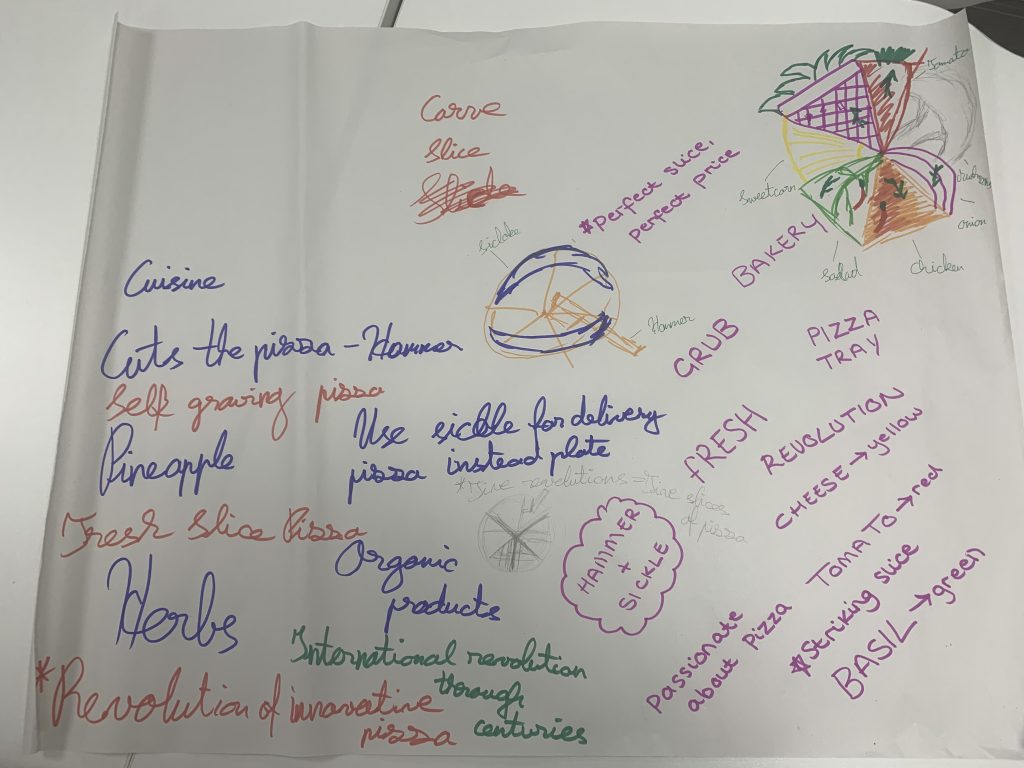 Carve
Slice
Cuisine
Cuts the pizza - Hammer
Self graving pizza
Pineapple
Use sickle for delivery
pizza instead plate
Fresh Slice Pizza
Organic
products
Herbs
International revolution
through
centuries
*Revolution of innovative
pizza
Hammer
*Five revolutions = Five slices
of pizza
HAMMER
+
SICKLE
*Perfect slice,
perfect price
BAKERY
GRUB
PIZZA
TRAY
FRESH
REVOLUTION
CHEESE → yellow
TOMATO → red
Passionate
about Pizza
*Striking slice
BASIL → green
Tomato
Sweetcorn
onion
Chicken